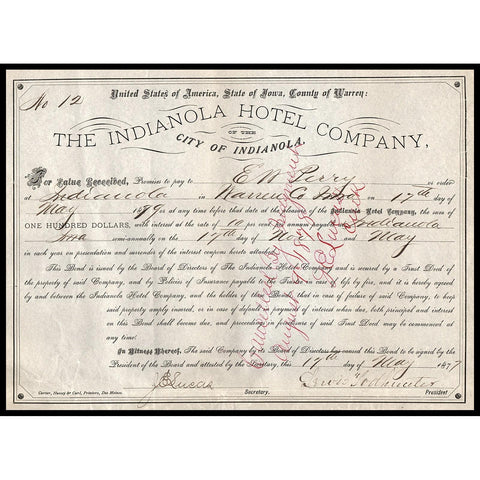 No 12
United States of America, State of Iowa, County of Warren:
THE INDIANOLA HOTEL COMPANY,
OF THE
CITY OF INDIANOLA.
For Value Received, Promise to pay to E W Perry or order
at Indianola in Warren Co Iowa on 17th day of
May 18 or at any time before that date at the pleasure of the Indianola Hotel Company, the sum of
ONE HUNDRED DOLLARS, with interest at the rate of 10 per cent per annum payable Indianola
Iowa semi-annually on the 17th day of Nov and May
in each year on presentation and surrender of the interest coupons hereto attached.
This Bond is issued by the Board of Directors of The Indianola Hotel Company and is secured by a Trust Deed of the
property of said Company, and by Policies of Insurance payable to the Trustee in case of loss by fire, and it is hereby agreed
by and between the Indianola Hotel Company, and the holder of this Bond, that in case of failure of said Company, to keep
said property amply insured, or in case of default in payment of interest when due, both principal and interest
on this Bond shall become due, and proceedings in foreclosure of said Trust Deed may be commenced at any
time!
In Witness Whereof, The said Company by its Board of Directors has caused this Bond to be signed by the
President of the Board and attested by the Secretary, this 17th day of May 1877
J B Lucas
Secretary. President
Carter, Hussey & Curl, Printers, Des Moines.
Cancelled by
August